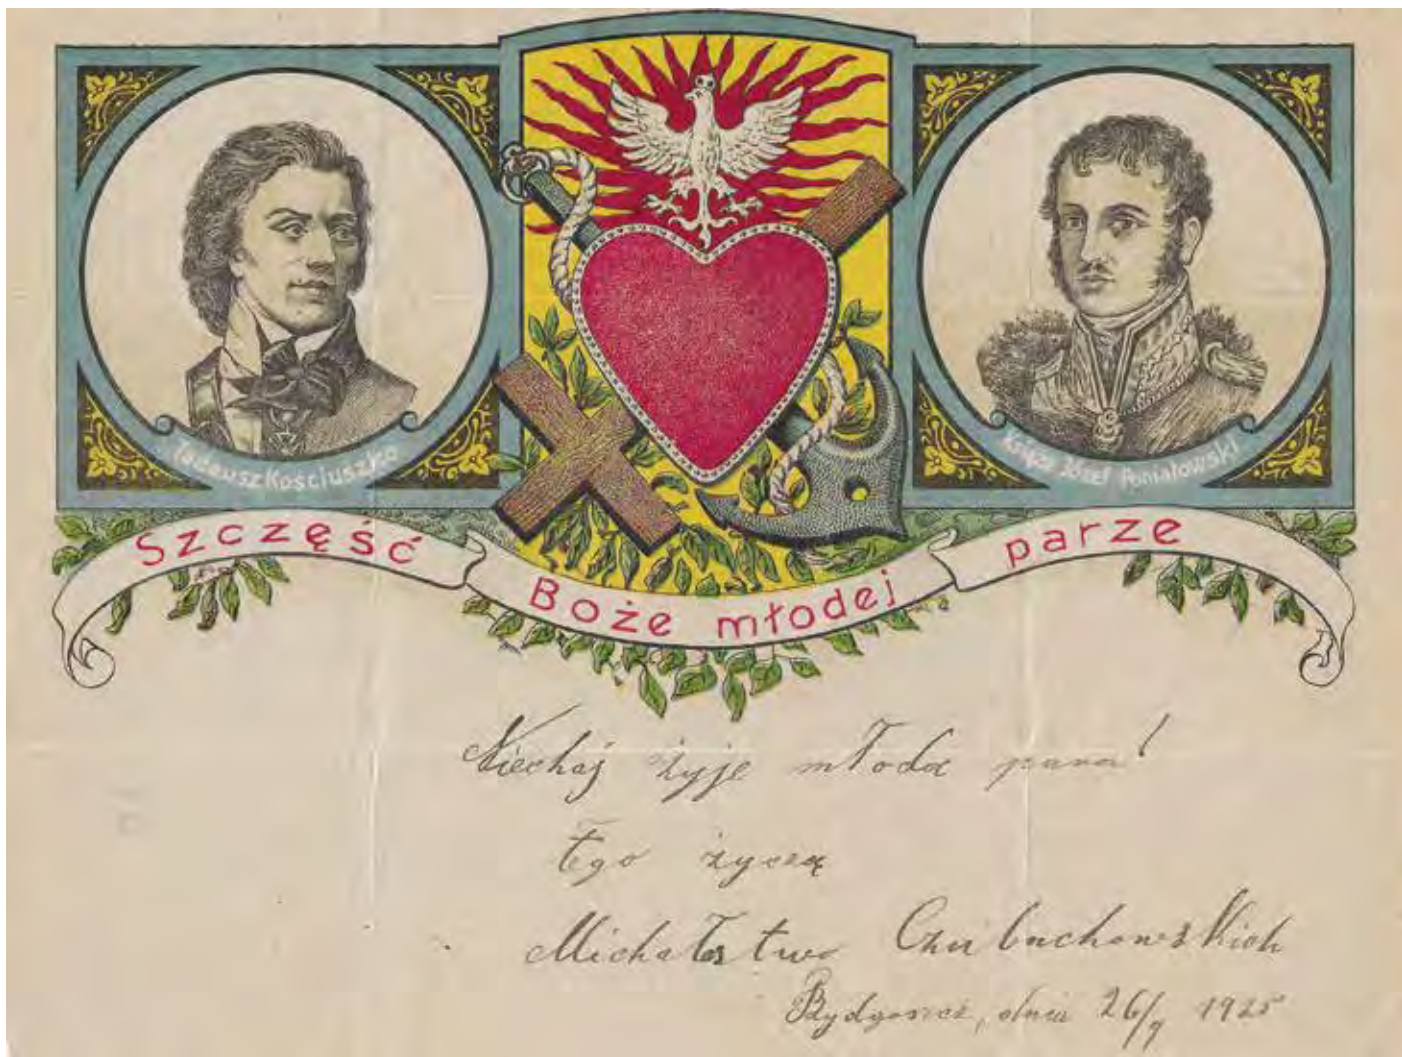 Tadeusz Kościuszko
Książe Józef Poniatowski
Szczęść Boże młodej parze
Niechaj żyje młoda para!
Tego życzą
Michałostwo
Bydgoszcz, dnia 26/9 1925